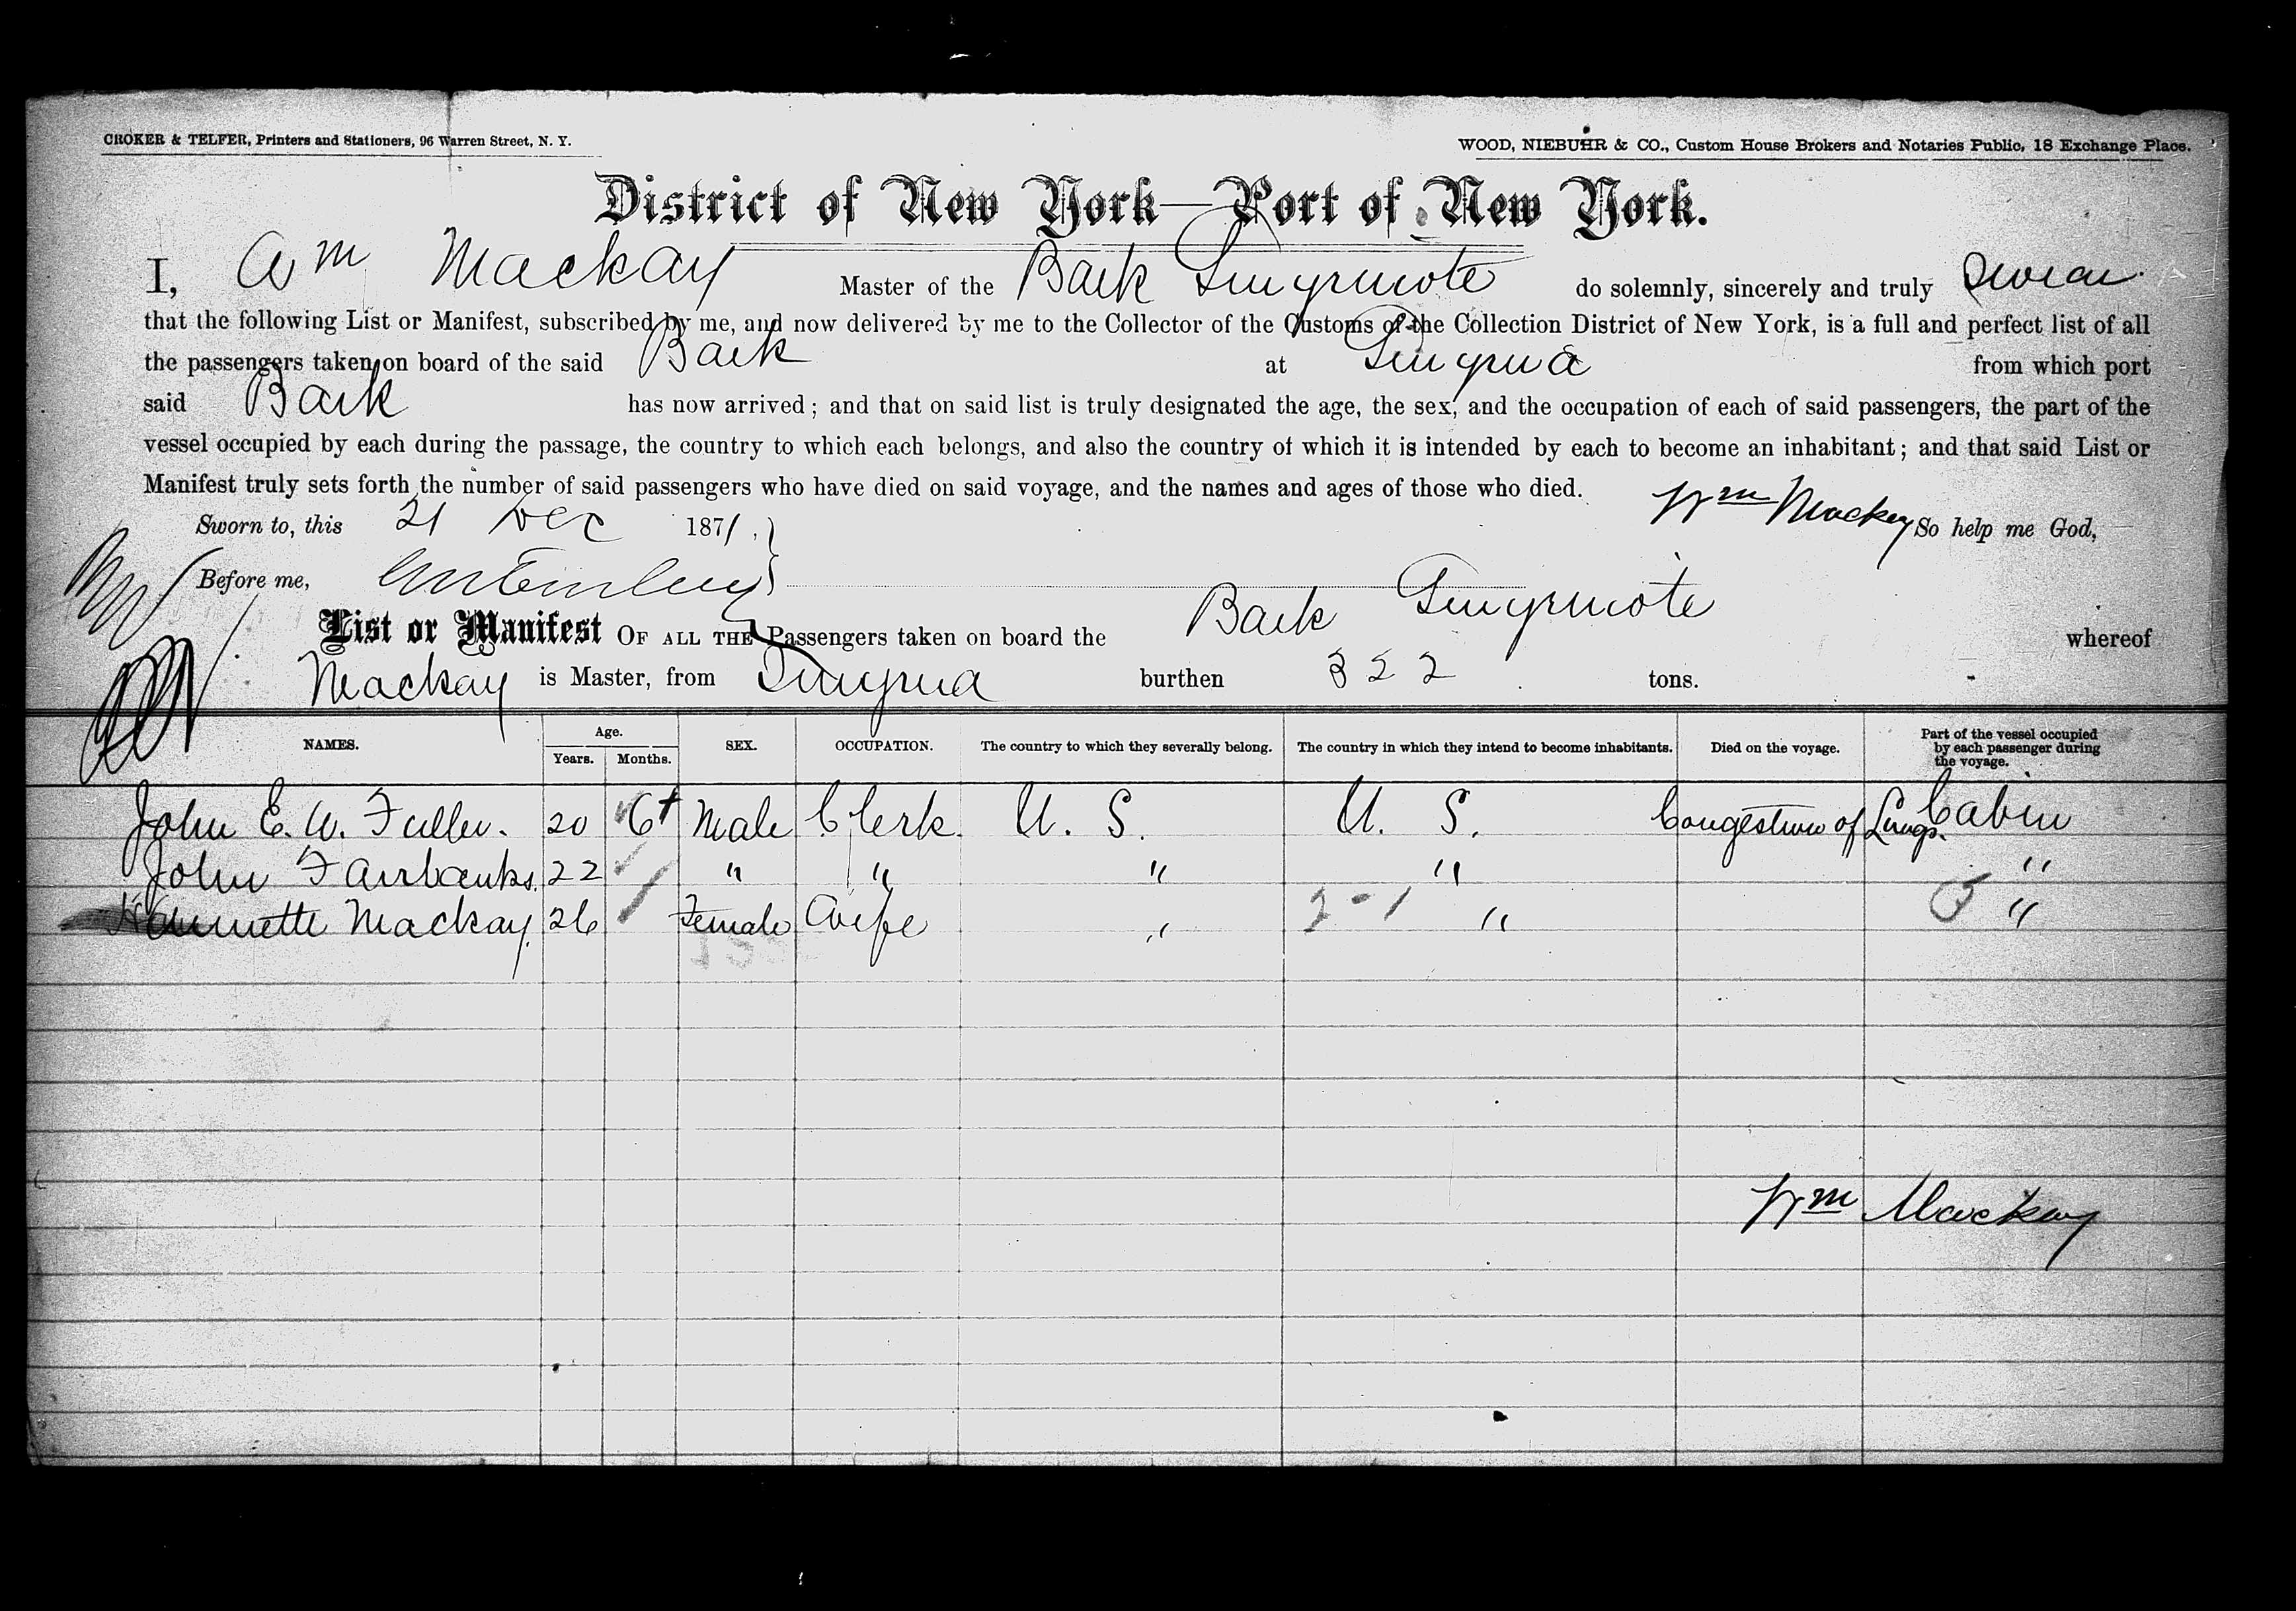 CROKER & TELFER, Printers and Stationers, 96 Warren Street, N. Y.
WOOD, NIEBUHR & CO., Custom House Brokers and Notaries Public, 18 Exchange Place.
District of New York—Port of New York.
I, Wm Mackay Master of the Bark Smyrniote do solemnly, sincerely and truly swear
that the following List or Manifest, subscribed by me, and now delivered by me to the Collector of the Customs of the Collection District of New York, is a full and perfect list of all
the passengers taken on board of the said Bark at Smyrna from which port
said Bark has now arrived; and that on said list is truly designated the age, the sex, and the occupation of each of said passengers, the part of the
vessel occupied by each during the passage, the country to which each belongs, and also the country of which it is intended by each to become an inhabitant; and that said List or
Manifest truly sets forth the number of said passengers who have died on said voyage, and the names and ages of those who died.
Wm Mackay So help me God,
Sworn to, this 21 Dec 1871.
Before me,
List or Manifest OF ALL THE Passengers taken on board the Bark Smyrniote whereof
Mackay is Master, from Smyrna burthen 322 tons.
NAMES. Age. Years. Months. SEX. OCCUPATION. The country to which they severally belong. The country in which they intend to become inhabitants. Died on the voyage. Part of the vessel occupied by each passenger during the voyage.
John E. W. Fuller. 20 6 Male Clerk. U. S. U. S. Congestion of Lungs. Cabin
John Fairbanks. 22 " " " " "
Mackay. 26 Female Wife " 2-1 " "
Wm Mackay